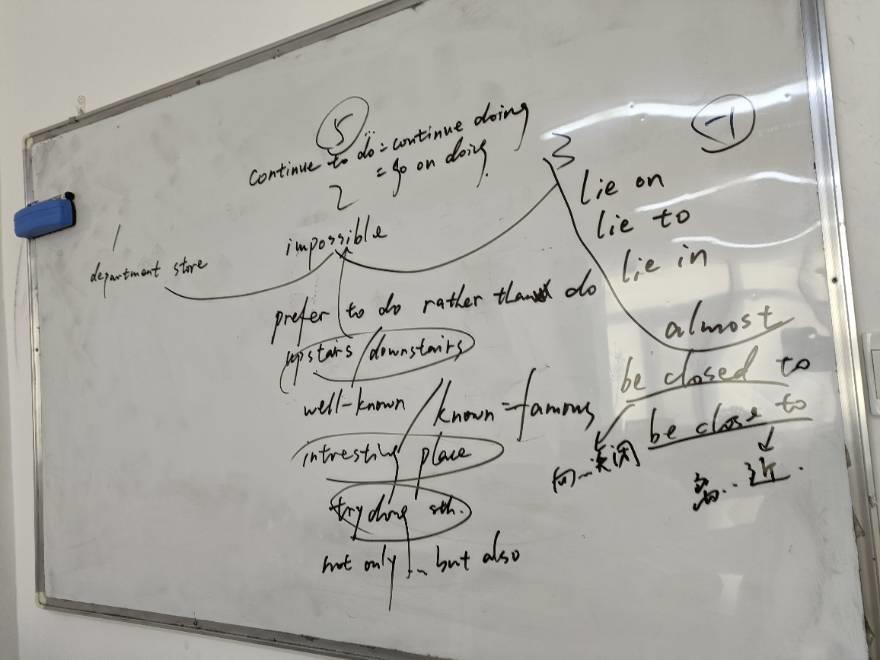 5
-1
continue to do = continue doing
= go on doing.
2
3
1
lie on
lie to
lie in
impossible
department store
prefer to do rather than do
almost
upstairs / downstairs
be closed to
well-known / known = famous
be close to
intresting place
向...关闭
离...近.
try doing sth.
not only ... but also